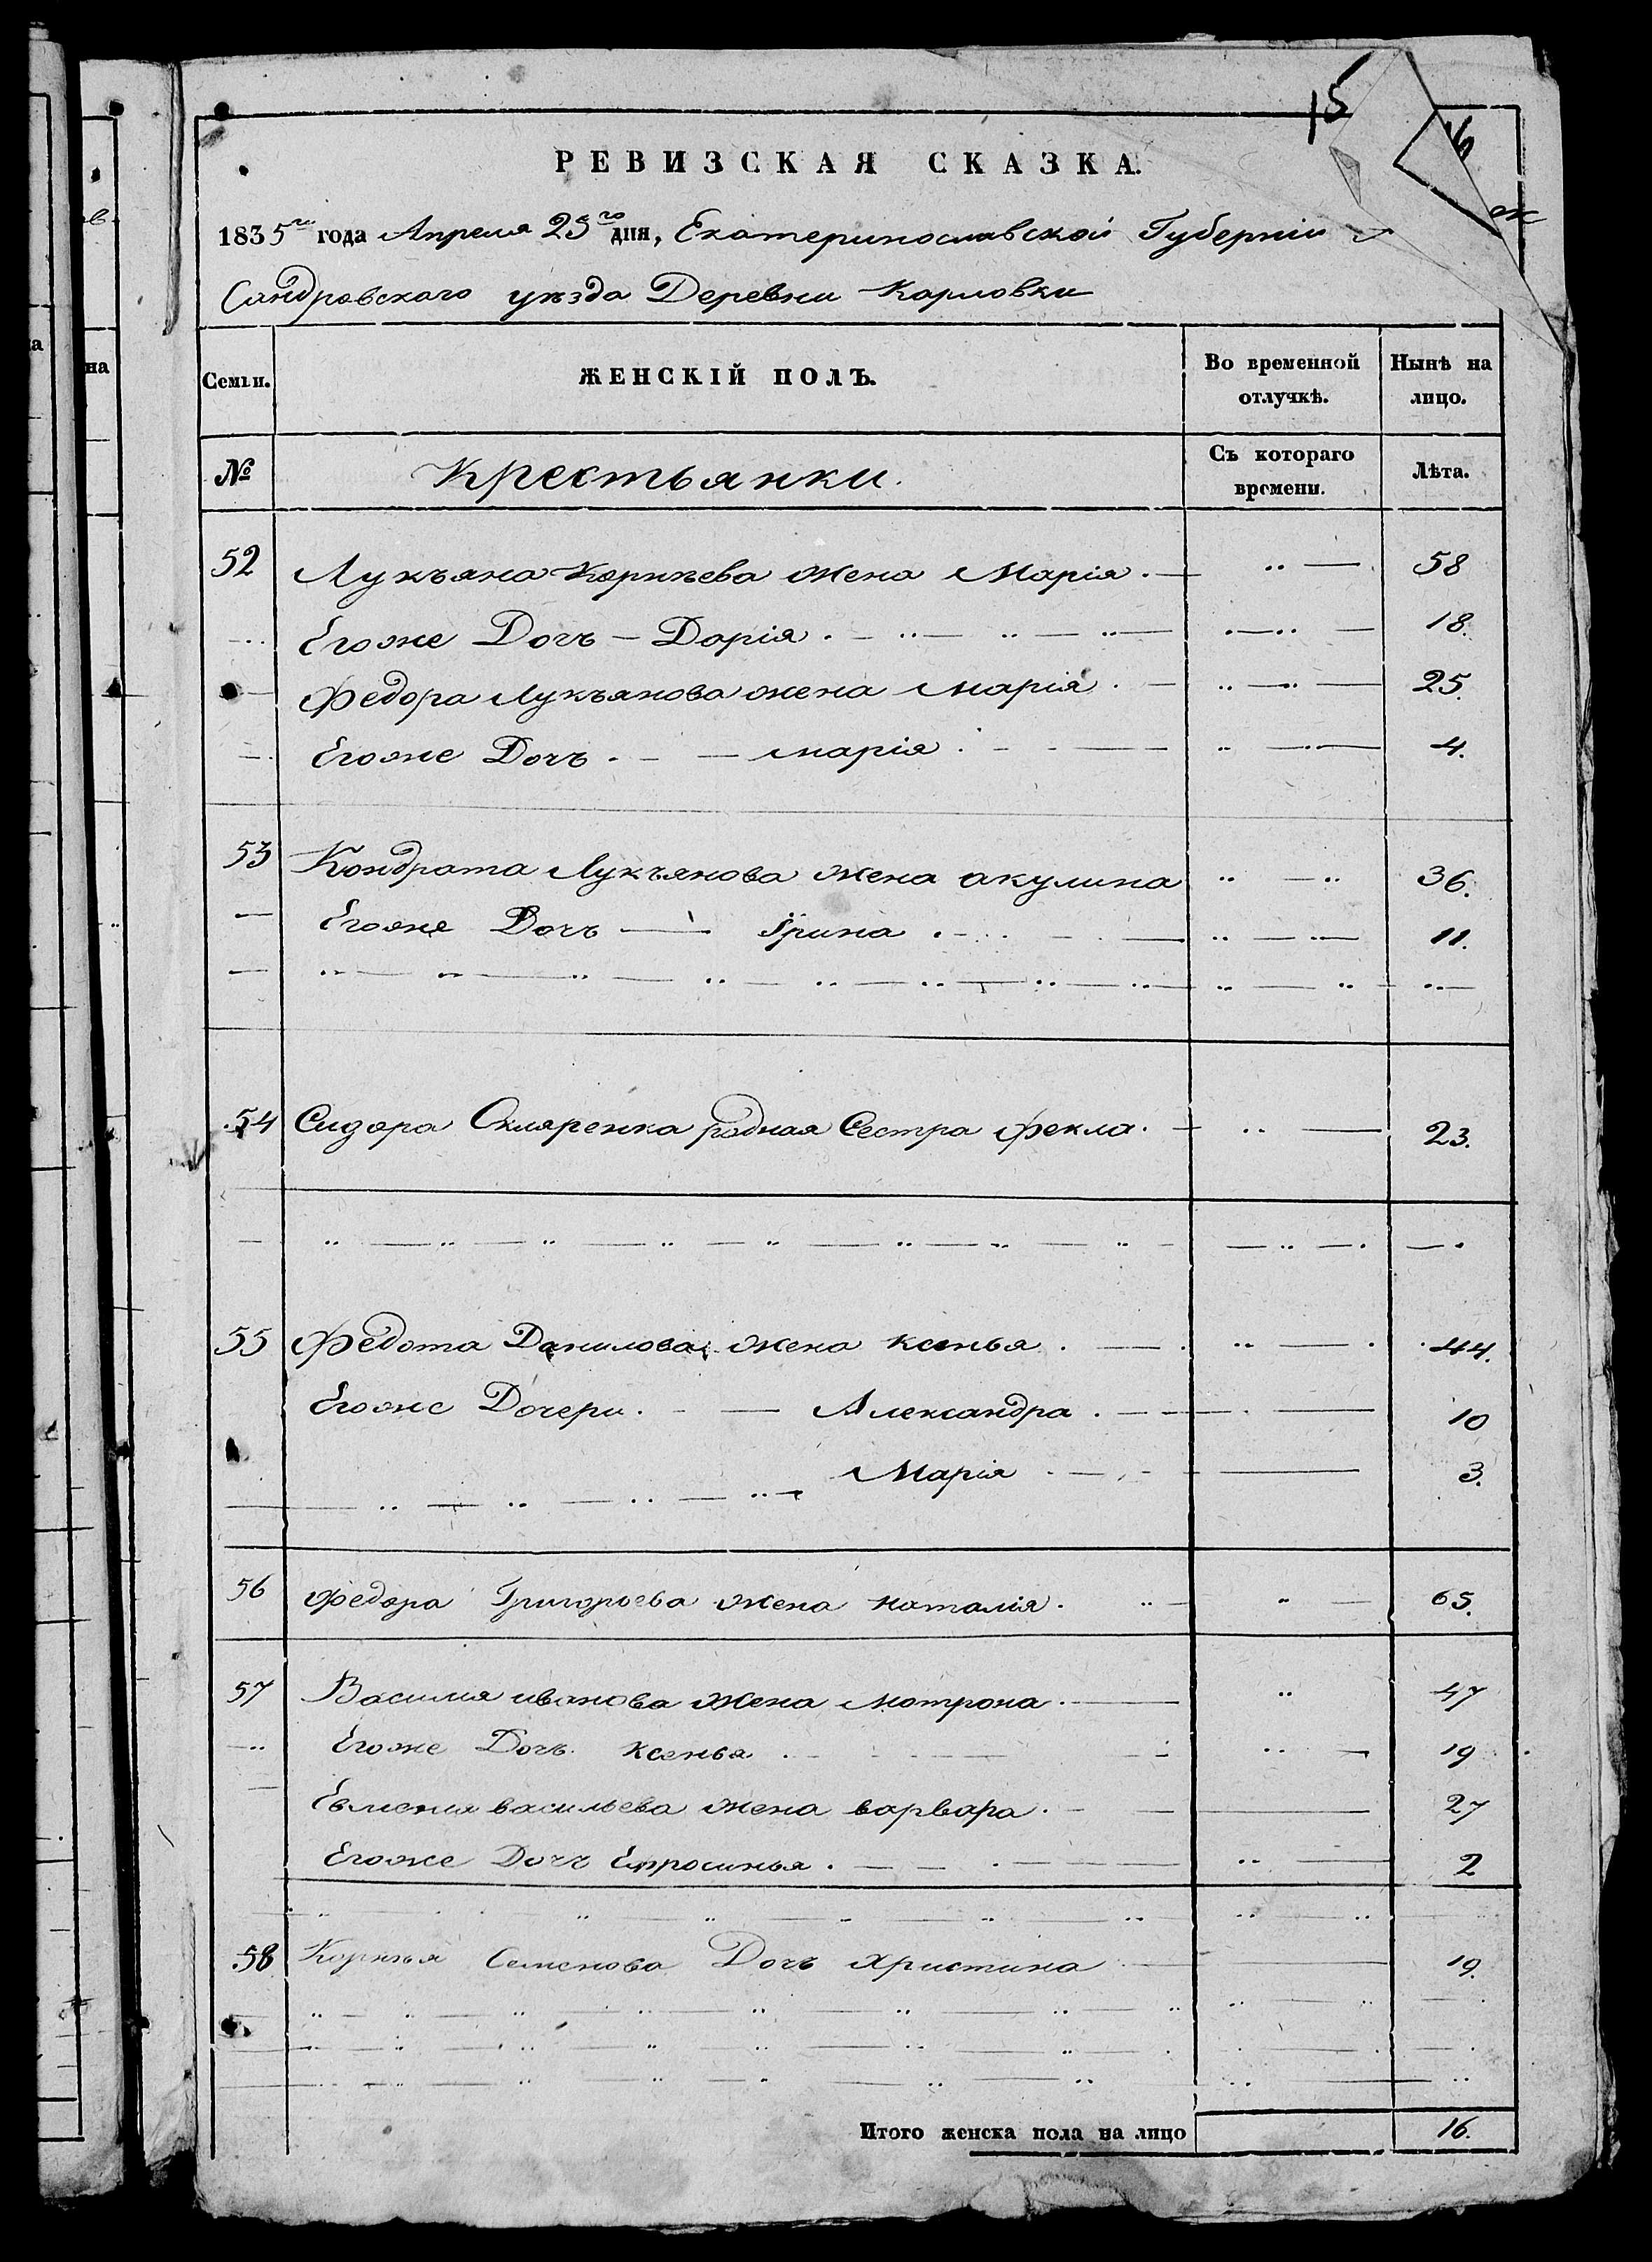 15
РЕВИЗСКАЯ СКАЗКА.
1835го года Апреля 25го дня, Екатеринославской Губерніи
Сандровского уѣзда Деревни Карловки
Семьи.
ЖЕНСКІЙ ПОЛЪ.
Во временной отлучкѣ.
Нынѣ на лицо.
№
Крестьянки.
Съ котораго времени.
Лѣта.
52 Лукъяна Корнѣева жена Марія 58
Егоже Дочъ Дарія 18.
Федора Лукъянова жена марія 25.
Егоже Дочъ марія 4.
53 Кондрата Лукъянова жена акулина 36.
Егоже Дочъ Ірина 11.
54 Сидора Скляренка родная Сестра Фекла 23.
55 Федота Данилова жена ксенья 44.
Егоже Дочери Александра 10
Марія 3.
56 Федора Григорьева жена наталія 65.
57 Василия иванова жена мотрона 47
Егоже Дочъ ксенья 19
васильева жена варвара 27
Егоже Дочъ Ефросинья 2
58 Корнѣя Семенова Дочъ христина 19.
Итого женска пола на лицо 16.